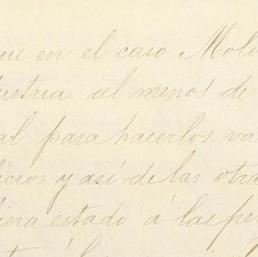 que en el caso Moli
dustria al menos de
al para hacerlos va
icios y así de las otra
iera estado á las pe